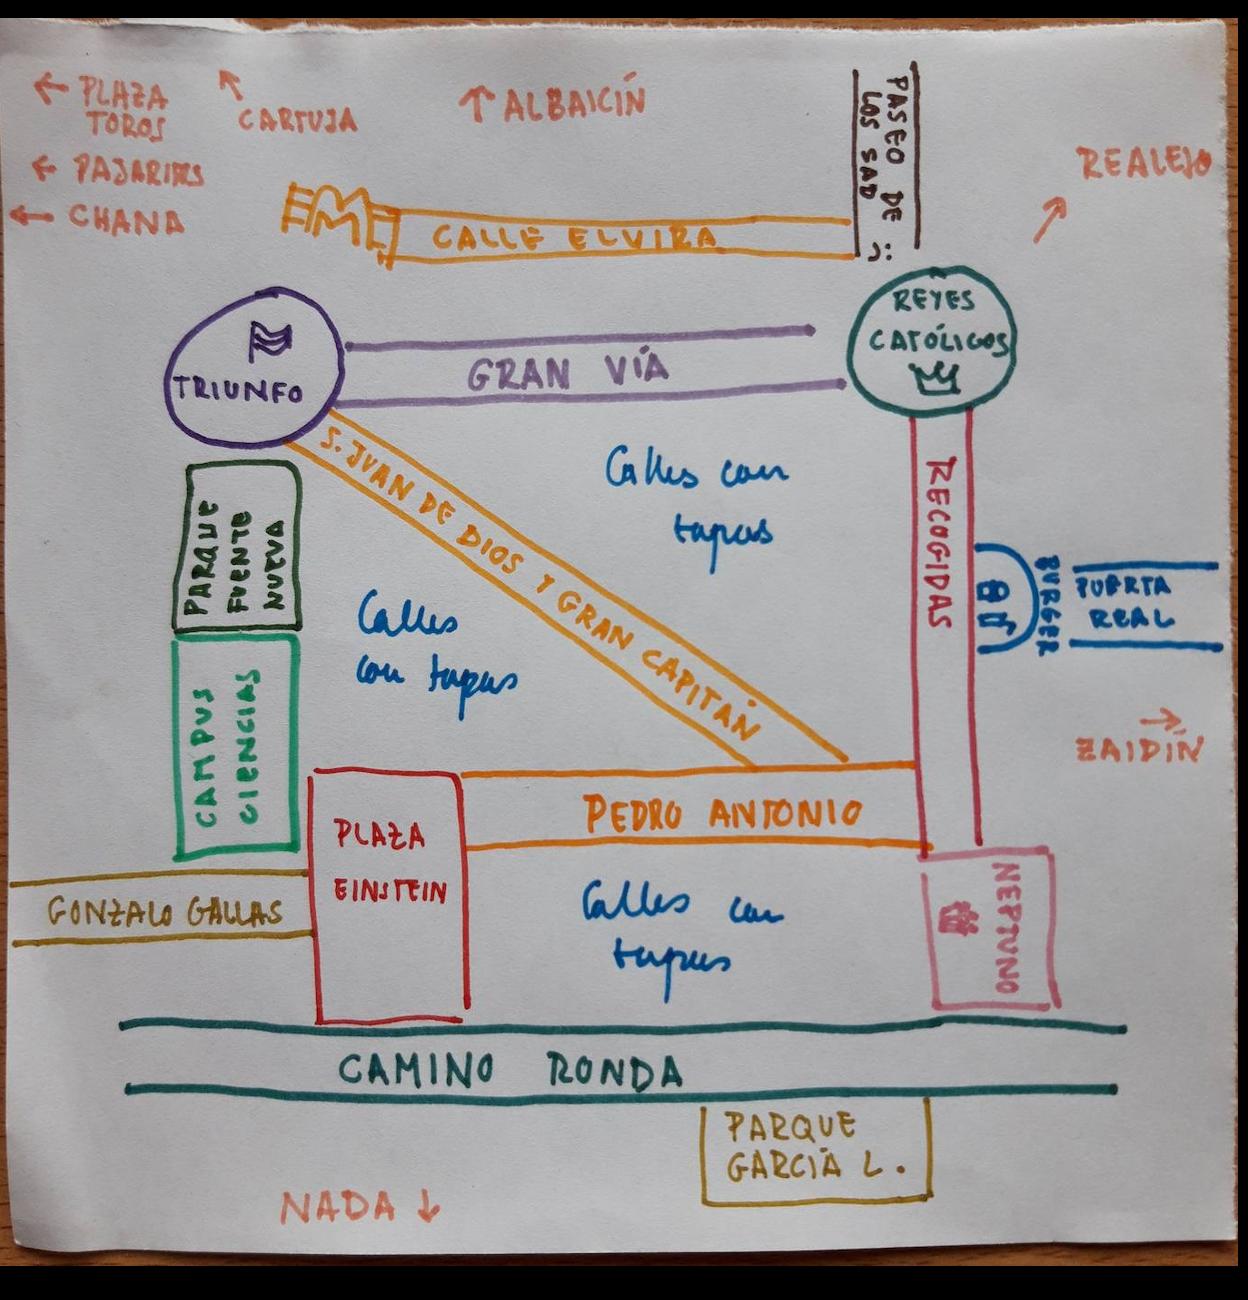 ← PLAZA
TOROS
CARTUJA
↑ ALBAICÍN
PASEO DE
LOS SAD
:(
REALEJO
← PAJARITOS
← CHANA
CALLE ELVIRA
REYES
CATÓLICOS
TRIUNFO
GRAN VÍA
S. JUAN DE DIOS Y GRAN CAPITÁN
Calles con
tapas
RECOGIDAS
PARQUE
FUENTE
NUEVA
BURGER
PUERTA
REAL
Calles
con tapas
CAMPUS
CIENCIAS
→
ZAIDÍN
PEDRO ANTONIO
PLAZA
EINSTEIN
NEPTUNO
GONZALO GALLAS
Calles con
tapas
CAMINO RONDA
PARQUE
GARCÍA L.
NADA ↓